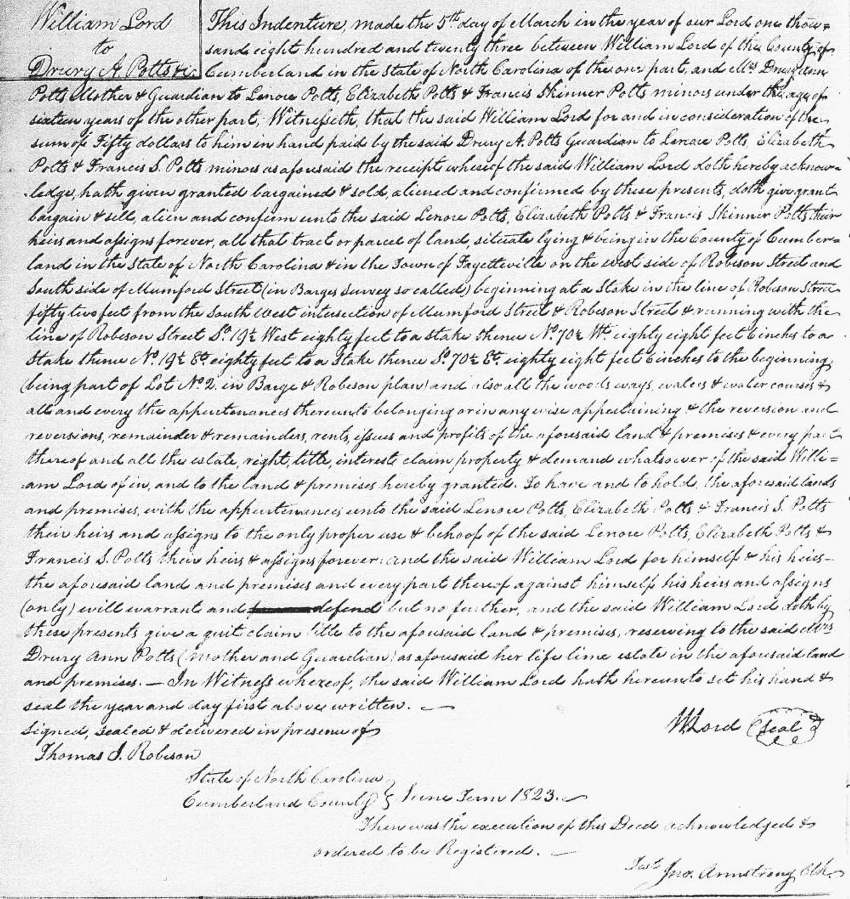 William Lord
to
Drury A. Potts &c.
This Indenture, made the 5th day of March in the year of our Lord one thou=
sand eight hundred and twenty three between William Lord of the County of
Cumberland in the State of North Carolina of the one part, and Mrs Drury Ann
Potts Mother & Guardian to Lenore Potts, Elizabeth Potts & Francis Skinner Potts minors under the age of
sixteen years of the other part, Witnesseth, that the said William Lord for and in consideration of the
sum of Fifty dollars to him in hand paid by the said Drury A. Potts Guardian to Lenore Potts, Elizabeth
Potts & Francis S. Potts minors as aforesaid the receipt whereof the said William Lord doth hereby acknow=
ledge, hath given granted bargained & sold, aliened and confirmed by these presents, doth give grant
bargain & sell, alien and confirm unto the said Lenore Potts, Elizabeth Potts & Francis Skinner Potts their
heirs and assigns forever, all that tract or parcel of land, situate lying & being in the County of Cumber=
land in the State of North Carolina & in the Town of Fayetteville on the west side of Robison Street and
South side of Mumford Street (in Barges Survey so called) beginning at a Stake in the line of Robison Street
fifty two feet from the South West intersection of Mumford Street & Robeson Street & running with the
line of Robeson Street So. 19½ West eighty feet to a stake thence No. 70½ Wt. eighty eight feet 6 inches to a
Stake thence No. 19½ Et. eighty feet to a Stake thence So. 70½ Et. eighty eight feet 6 inches to the beginning,
(being part of Lot No 2 in Barge & Robeson plan) and also all the woods ways, waters & water courses &
all and every the appurtenances thereunto belonging or in any wise appertaining & the reversion and
reversions, remainder & remainders, rents, issues and profits of the aforesaid land & premises & every part
thereof and all the estate, right, title, interest claim property & demand whatsoever of the said Willi=
am Lord of in, and to the land & premises hereby granted. To have and to hold, the aforesaid lands
and premises, with the appurtenances unto the said Lenore Potts, Elizabeth Potts & Francis S. Potts
their heirs and assigns to the only proper use & behoof of the said Lenore Potts, Elizabeth Potts &
Francis S. Potts their heirs & assigns forever: and the said William Lord for himself & his heirs–
the aforesaid land and premises and every part thereof against himself his heirs and assigns
(only) will warrant and defend but no further, and the said William Lord doth by
these presents give a quit claim title to the aforesaid land & premises, reserving to the said Mrs
Drury Ann Potts (mother and Guardian) as aforesaid her life time estate in the aforesaid land
and premises. — In Witness whereof, the said William Lord hath hereunto set his hand &
seal the year and day first above written. —
Signed, sealed & delivered in presence of
W Lord (seal)
Thomas J. Robeson
State of North Carolina
Cumberland County } June Term 1823. —
Then was the execution of this Deed acknowledged &
ordered to be Registered. —
Test. Jno. Armstrong Clk.